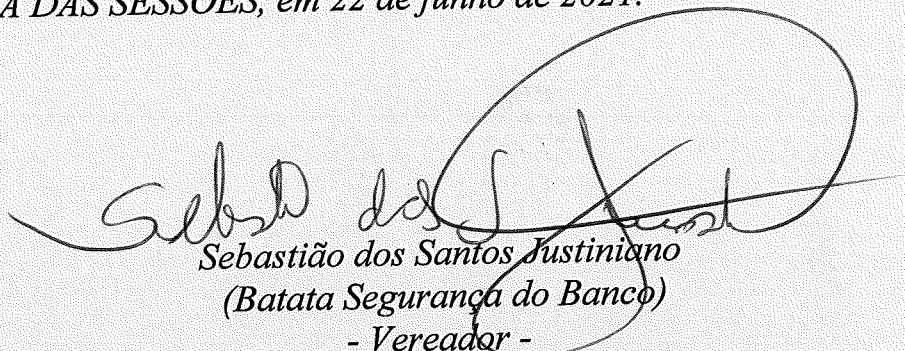 A DAS SESSÕES, em 22 de junho de 2021.
Sebastião dos Santos Justiniano
(Batata Segurança do Banco)
- Vereador -